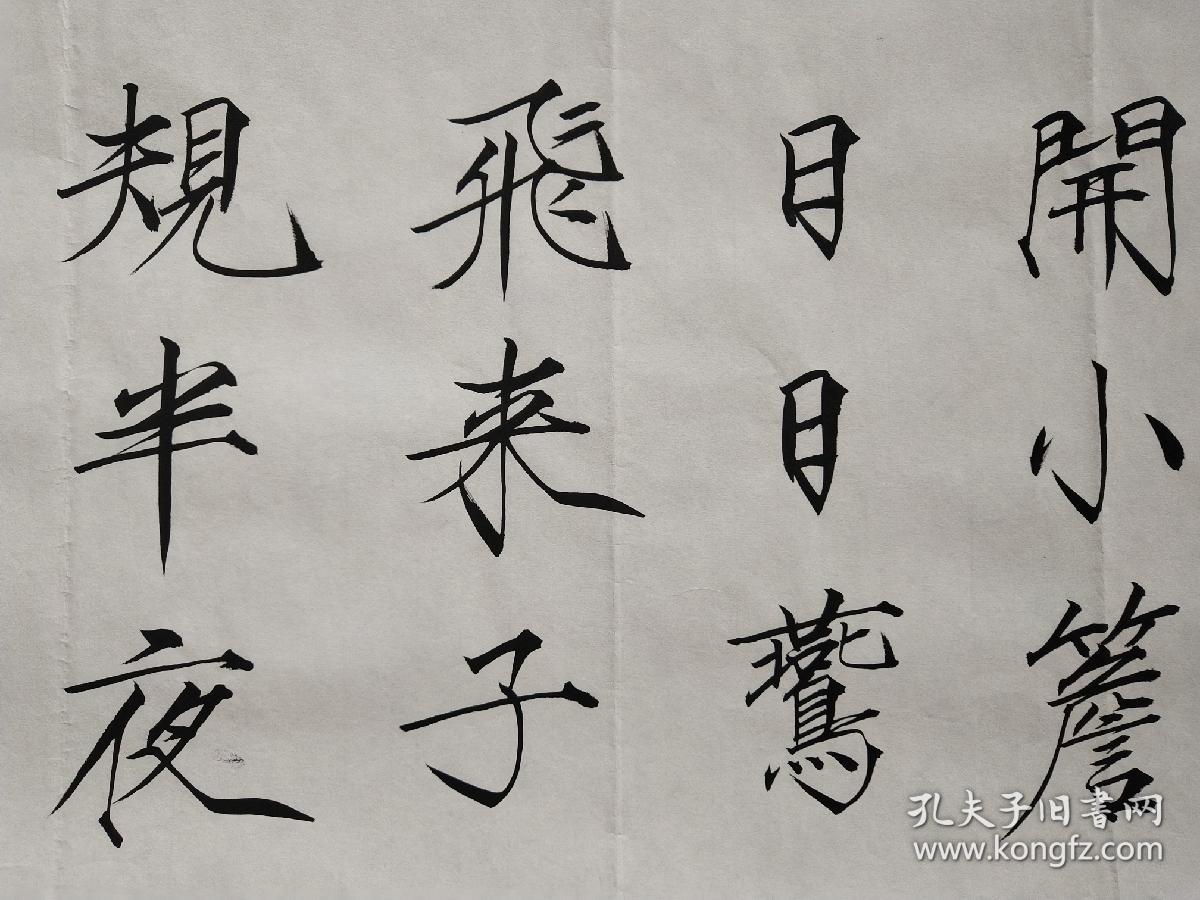 開小簷
日日鷰
飛来子
規半夜
孔夫子旧書网
www.kongfz.com